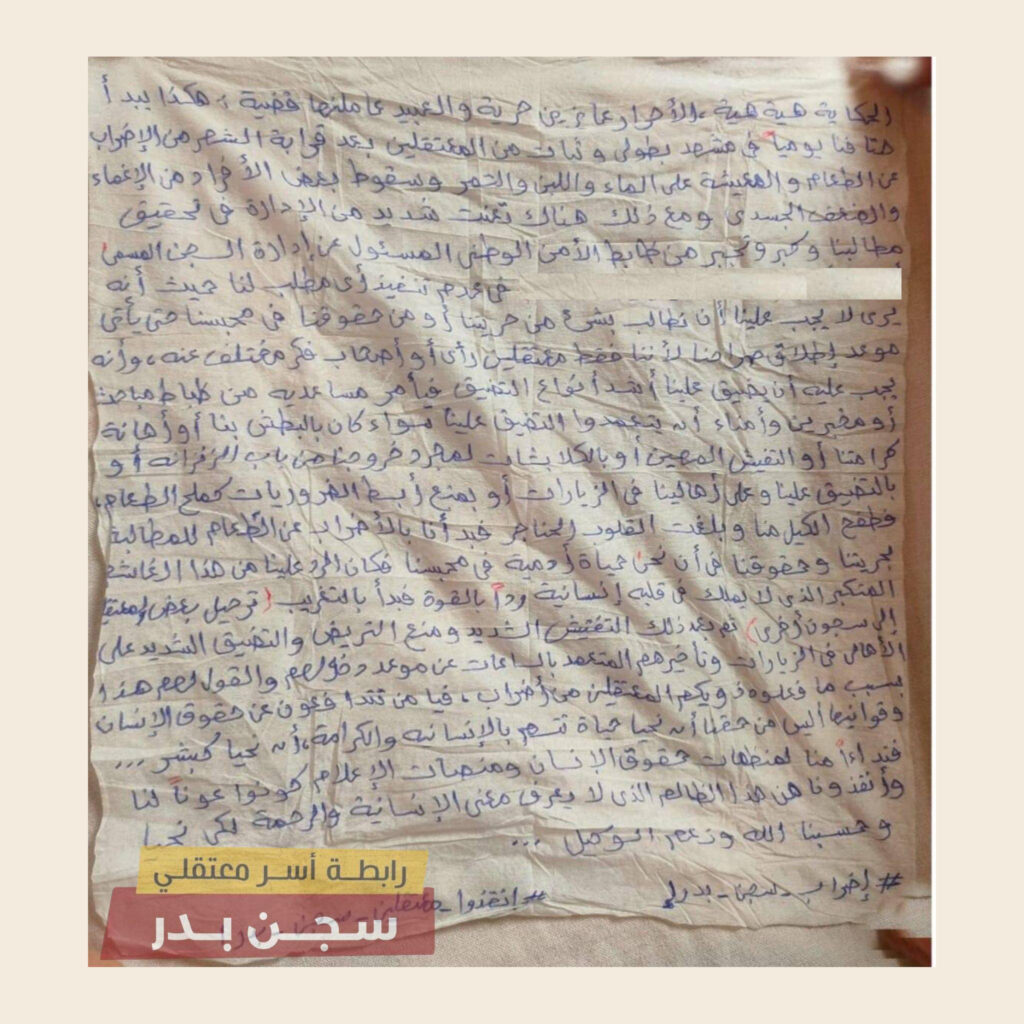 الحكاية هية هية ، الأحرار عايزين حرية والعبيد عاملنها قضية ؛ هكذا يبدأ
هتافنا يومياً فى مشهد بطولى وثبات من المعتقلين بعد قرابة الشهر من الإضراب
عن الطعام والمعيشة على الماء واللبن والتمر وسقوط بعض الأفراد من الإغماء
والضعف الجسدى ومع ذلك هناك تعنت شديد من الإدارة فى تحقيق
مطالبنا وكبر وتجبر من ظابط الأمن الوطنى المسئول عن إدارة السجن المسمى
فى عدم تنفيذ أى مطلب لنا حيث أنه
يرى لا يجب علينا أن نطالب بشئ من حريتنا أو من حقوقنا فى محبسنا حتى يأتى
موعد إطلاق صراحنا لأننا فقط معتقلين رأى أو أصحاب فكر مختلف عنه ، وأنه
يجب عليه أن يضيق علينا أشد أنواع التضيق فيأمر مساعديه من ظباط مباحث
أو مخبرين وأمناء أن يتعمدوا التضيق علينا سواء كان بالبطش بنا أو أهانة
كرامتنا أو التفيش المهين أو بالكلابشات لمجرد خروجنا من باب الزنزانه أو
بالتضيق علينا وعلى أهالينا فى الزيارات أو بمنع أبسط الضروريات كملح الطعام ،
فطفح الكيل منا وبلغت القلوب الحناجر فبدأنا بالأضراب عن الطعام للمطالبة
بحريتنا وحقوقنا فى أن نحى حياة أدمية فى محبسنا فكان الرد علينا من هذا
المتكبر الذى لا يملك فى قلبه إنسانية رداً بالقوة فبدأ بالتغريب (ترحيل بعض المعتقلين
إلى سجون أخرى) ثم بعد ذلك التفتش الشديد ومنع التريض والتضيق الشديد على
الأهالى فى الزيارات وتأخيرهم المتعمد بالساعات عن موعد دخولهم والقول لهم هذا
بسبب ما فعلوه ذويكم المعتقلين من أضراب ، فيا من تتدافعون عن حقوق الإنسان
وقوانيها أليس من حقنا أن نحيا حياة تتسم بالإنسانيه والكرامة ، أن نحيا كبشر ...
فنداءاً منا لمنظمات حقوق الانسان ومنصات الإعلام كونوا عوناً لنا
وأنقذونا من هذا الظالم الذى لا يعرف معنى الإنسانية والرحمة لكى نحيا
وحسبنا الله ونعم الوكيل ...
#إضراب_سجن_بدر1
#انقذوا_معتقلين
رابطة أسر معتقلي
سجن بدر